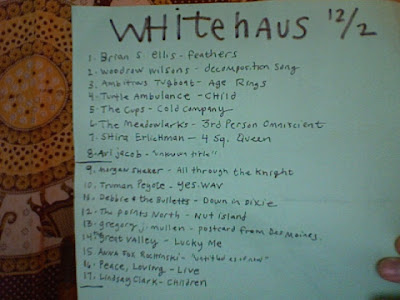 WHITEHAUS 12/2
1. Brian S. Ellis - feathers
2. Woodrow Wilsons - decomposition song
3. Ambitious Tugboat - Age Rings
4. Turtle Ambulance - Child
5. The Cups - Cold Company
6. The Meadowlarks - 3rd Person Omniscient
7. Shira Erlichman - 4 Sq. Queen
8. Ari Jacob - "unknown title"
9. Morgan Shaker - All through the Knight
10. Truman Peyote - yes.wav
11. Debbie & the Bullets - Down in Dixie
12. The Points North - Nut Island
13. gregory j. mullen - postcard from Des Moines.
14. Great Valley - Lucky Me
15. Anna Fox - "untitled
16. Peace, Loving - Live
17. Lindsay Clark - Children